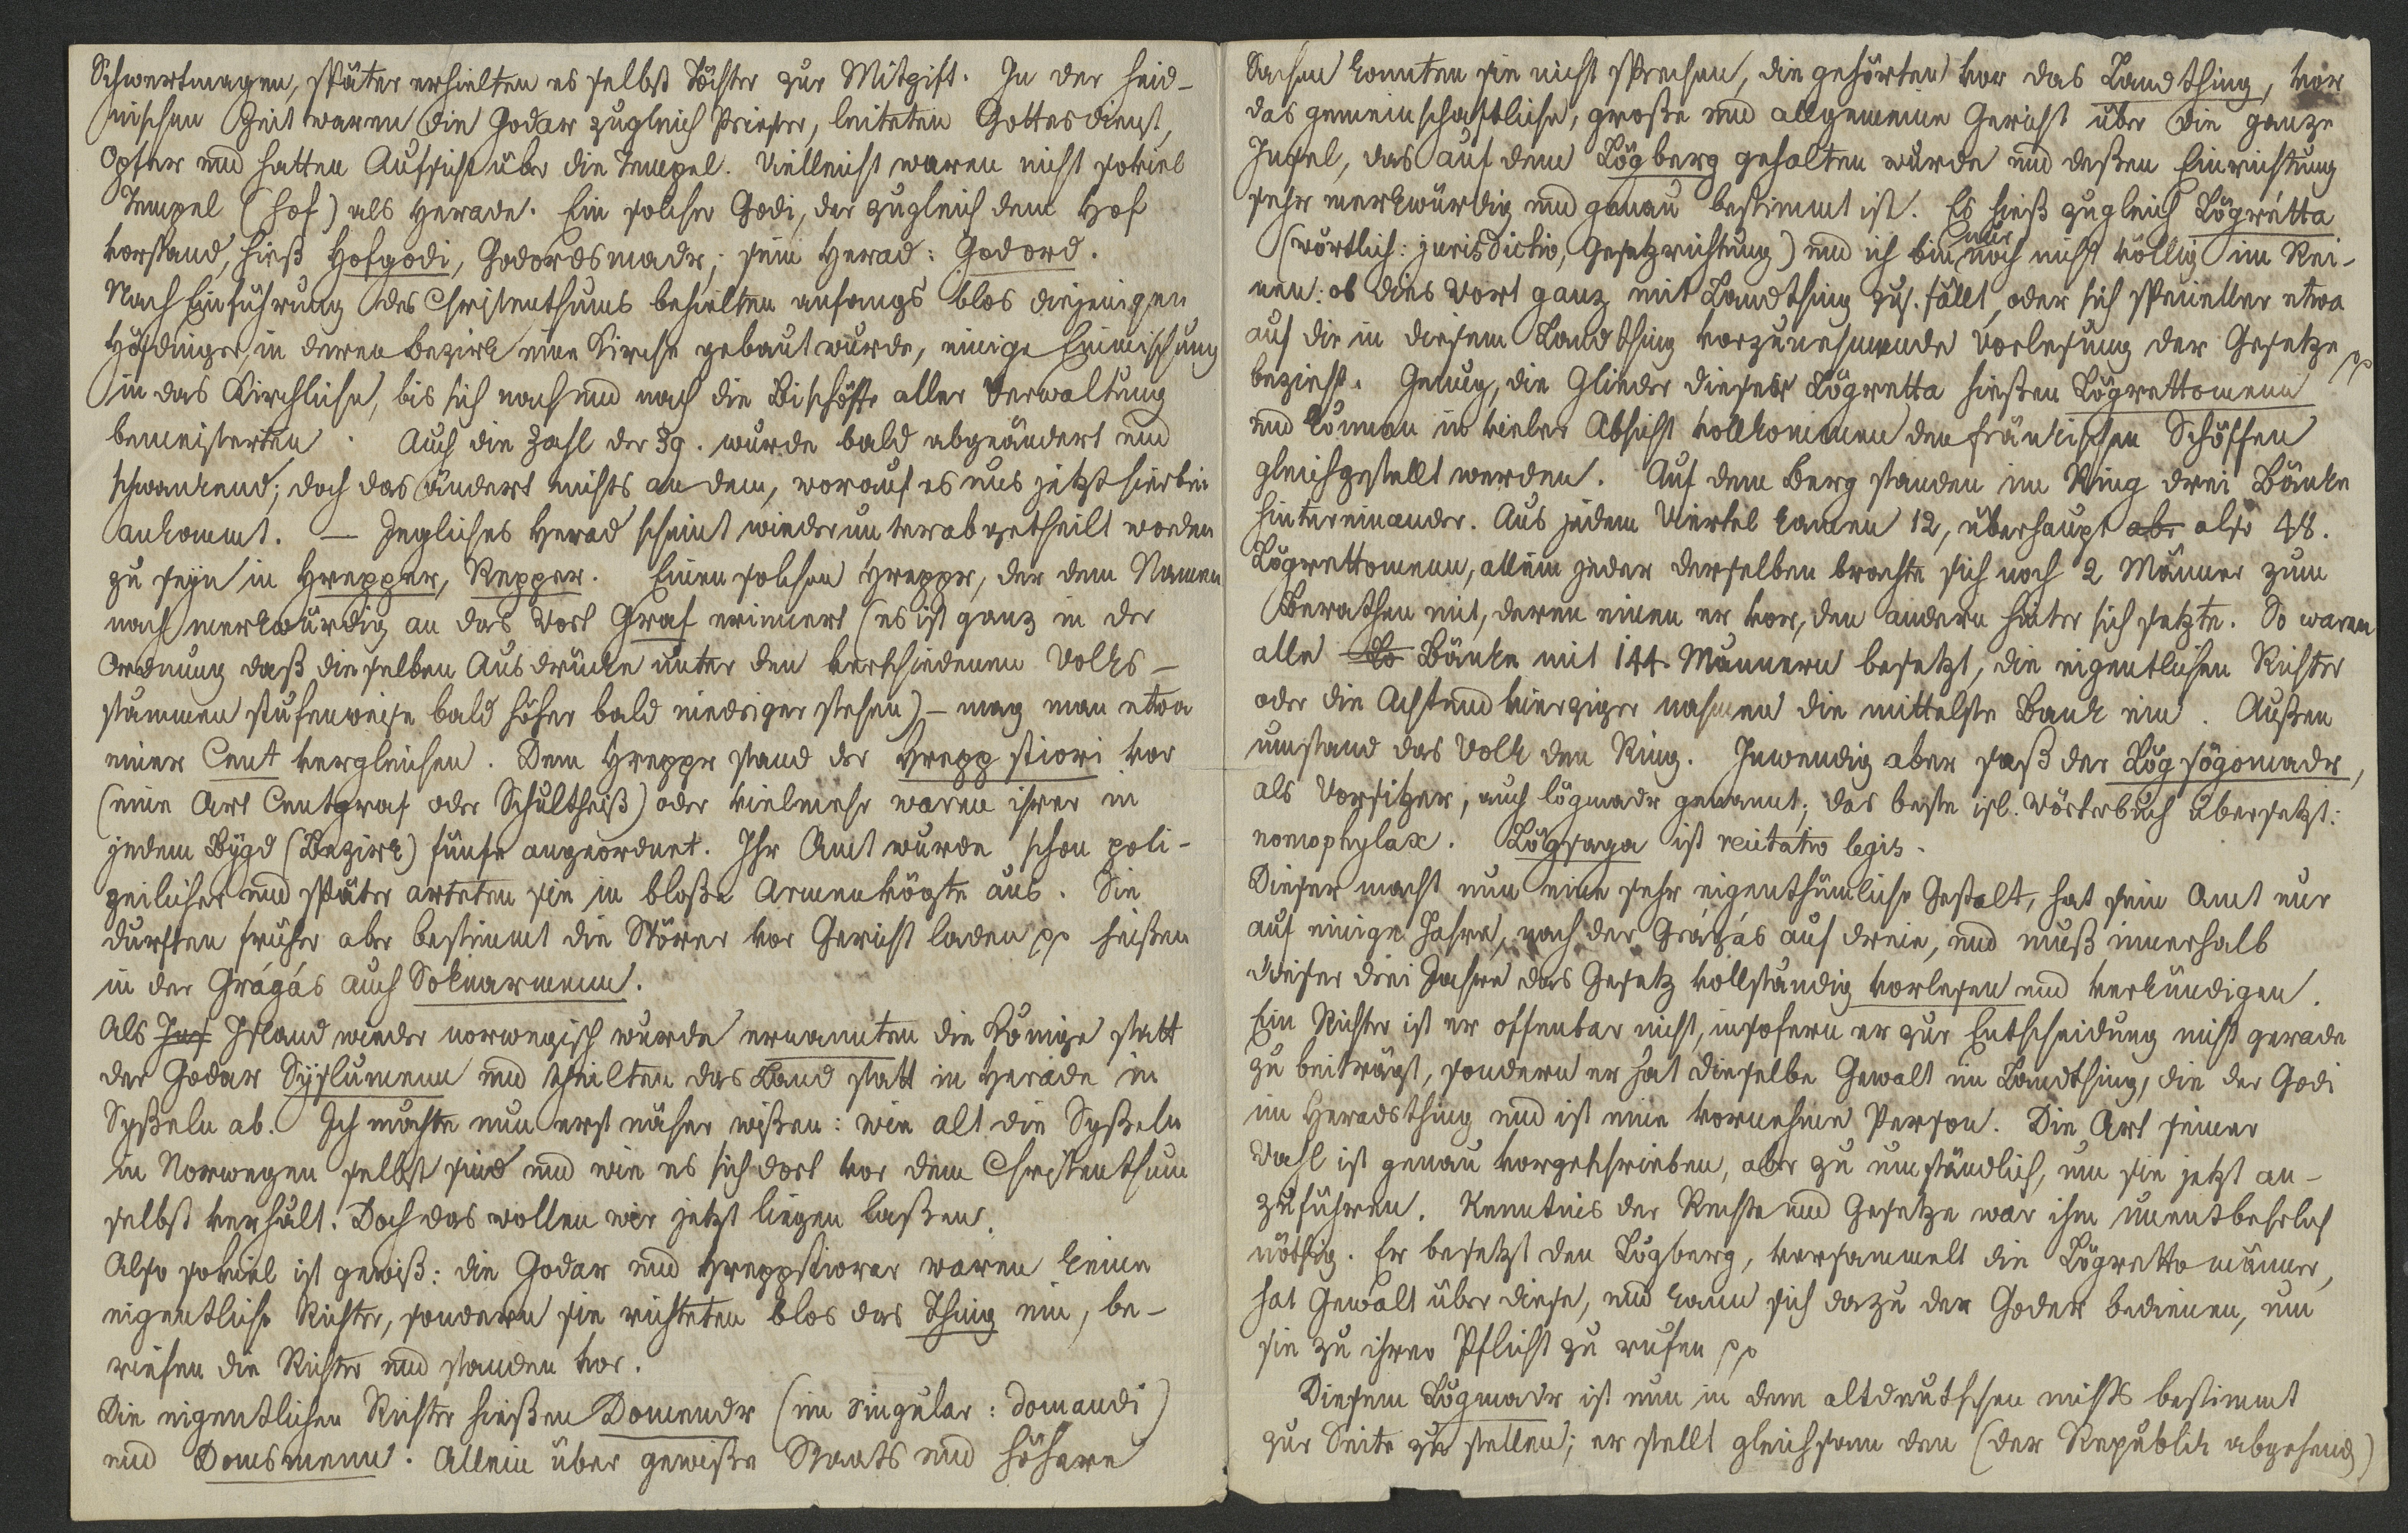 Schwertmagen, später erhielten es selbst Töchter zur Mitgift. In der heid-
nischen Zeit waren die Godar zugleich Priester, leiteten Gottesdienst,
Opfer und hatten Aufsicht über die Tempel. Vielleicht waren nicht soviel
Tempel (hof) als Herade. Ein solcher Godi, der zugleich dem Hof
vorstand, hieß Hofgodi, Godordsmadr; sein Herad: Godord.
Nach Einführung des Christenthums behielten anfangs blos diejenigen
Höfdinger, in deren Bezirk eine Kirche gebaut wurde, einige Einmischung
in das Kirchliche, bis sich nach und nach die Bischöffe aller Verwaltung
bemeisterten. Auch die Zahl der 39. wurde bald abgeändert und
schwankend; doch das ändert nichts an dem, worauf es uns jetzt hierbei
ankommt. — Jegliches Herad scheint wiederum unterabgetheilt worden
zu seyn in Hrepper, Repper. Einen solchen Hreppr, der dem Namen
nach merkwürdig an das Wort Graf erinnert (es ist ganz in der
Ordnung daß dieselben Ausdrücke unter den verschiedenen Volks-
stämmen stufenweise bald höher bald niedriger stehen) – mag man etwa
einer Cent vergleichen. Dem Hreppr stand der Hreppstiori vor
(eine Art Centgraf oder Schultheiß) oder vielmehr waren ihrer in
jedem Bygd (Bezirk) fünfe angeordnet. Ihr Amt wurde schon poli-
zeilicher und später arteten sie in bloße Armenvögte aus. Sie
durften früher aber bestimmt die Störer vor Gericht laden pp heißen
in der Grágás auch Soknarmenn.
Als Jas Island wieder norwegisch wurde ernannten die Könige statt
der Godar Syslumenn und theilten das Land statt in Herade in
Syßeln ab. Ich möchte nun erst näher wißen: wie alt die Syßeln
in Norwegen selbst sind und wie es sich dort vor dem Christenthum
selbst verhält. Doch das wollen wir jetzt liegen laßen.
Also soviel ist gewiß: die Godar und Hreppstiorar waren keine
eigentliche Richter, sondern sie richteten blos das Thing ein, be-
riefen die Richter und standen vor.
Die eigentlichen Richter hießen Domendr (im Singular: domandi)
und Domsmenn. Allein über gewiße Staats und höhere
Sachen konnten sie nicht sprechen, die gehörten vor das Landthing, vor
das gemeinschaftliche, große und allgemeine Gericht über die ganze
Insel, das auf dem Lögberg gehalten wurde und deßen Einrichtung
sehr merkwürdig und genau bestimmt ist. Es hieß zugleich Lögrétta
(wörtlich: jurisdictio, Gesetzrichtung) und ich bin nur noch nicht völlig im Rei-
nen: ob dies Wort ganz mit Landthing zus. fällt, oder sich specieller etwa
auf die in diesem Landthing vorzunehmende Vorlesung der Gesetze pp
bezieht. Genug, die Glieder dieser Lögretta hießen Lögrettomenn
und können in vieler Absicht vollkommen den fränkischen Schöffen
gleichgestellt werden. Auf dem Berg standen im Ring drei Bänke
hintereinander. Aus jedem Viertel kamen 12, überhaupt abr also 48.
Lögrettomenn, allein jeder derselben brachte sich noch 2 Männer zum
Berathen mit, deren einen er vor, den andern hinter sich setzte. So waren
alle Bänke mit 144 Männern besetzt, die eigentlichen Richter
oder die Achtundvierziger nahmen die mittelste Bank ein. Außen
umstand das Volk den Ring. Inwendig aber saß der Lögsögomadr,
als Vorsitzer, auch lögmadr genannt; das beste isl. Wörterbuch übersetzt:
nomophylax. Lögsaga ist recitatio legis.
Dieser macht nun eine sehr eigenthümliche Gestalt, hat sein Amt nur
auf einige Jahre, nach der Grágás auf dreie, und muß innerhalb
dieser drei Jahre das Gesetz vollständig vorlesen und verkündigen.
Ein Richter ist er offenbar nicht, insofern er zur Entscheidung nicht gerade
zu beiträgt, sondern er hat dieselbe Gewalt im Landthing, die der Godi
im Heradsthing und ist eine vornehme Person. Die Art seiner
Wahl ist genau vorgeschrieben, aber zu umständlich, um sie jetzt an-
zuführen. Kenntnis der Rechte und Gesetze war ihm unentbehrlich
nöthig. Er besetzt den Lögberg, versammelt die Lögrettomänner,
hat Gewalt über diese, und kann sich dazu der Goder bedienen, um
sie zu ihrer Pflicht zu rufen pp
Diesem Lögmadr ist nun in dem altdeutschen nichts bestimmt
zur Seite zu stellen; er stellt gleichsam den (der Republik abgehend)